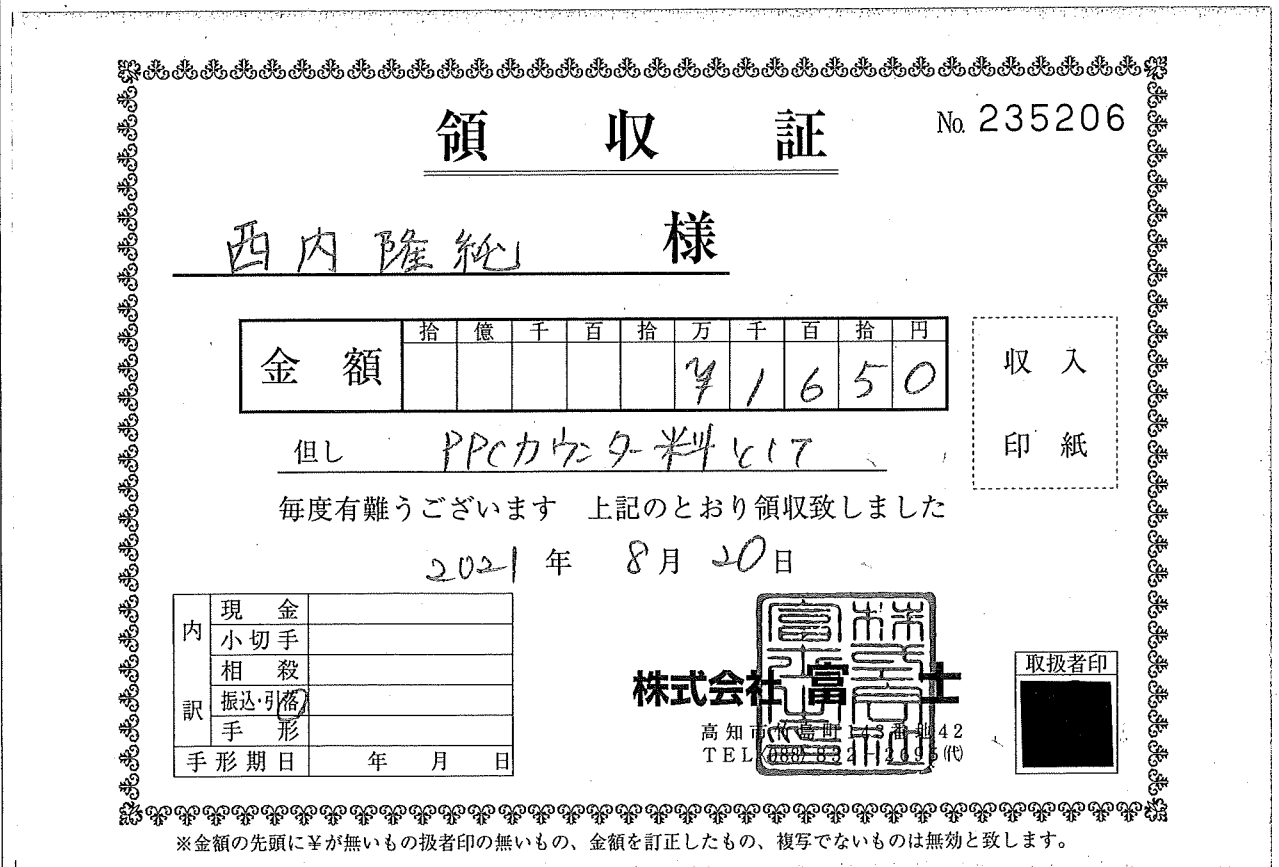 領収証
No. 235206
西内隆純 様
金額
拾 億 千 百 拾 万 千 百 拾 円
¥ 1 6 5 0
収入
印紙
但し PPCカウンター料として
毎度有難うございます 上記のとおり領収致しました
2021年 8月 20日
内訳
現金
小切手
相殺
振込・引落
手形
手形期日 年 月 日
株式会社 富士
高知市竹島町143番地42
TEL(088)832-2695(代)
取扱者印
※金額の先頭に¥が無いもの扱者印の無いもの、金額を訂正したもの、複写でないものは無効と致します。